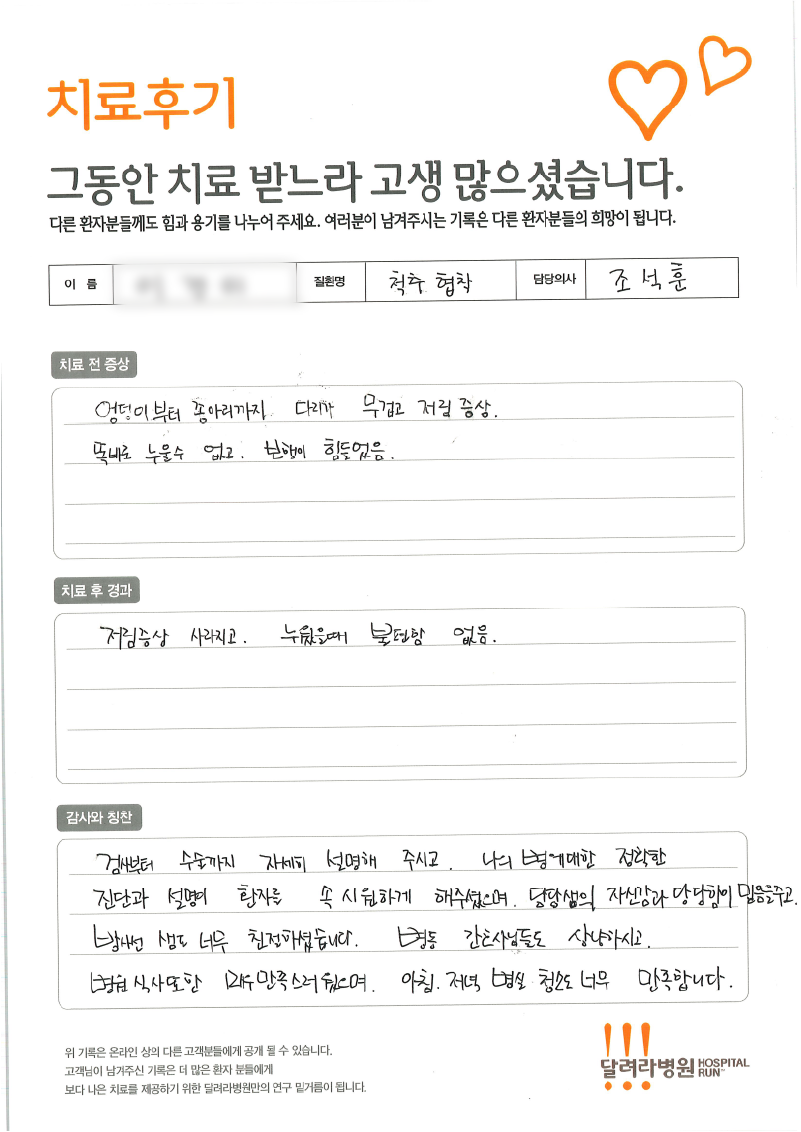 치료후기
그동안 치료 받느라 고생 많으셨습니다.
다른 환자분들께도 힘과 용기를 나누어 주세요. 여러분이 남겨주시는 기록은 다른 환자분들의 희망이 됩니다.
이 름 질환명 척추 협착 담당의사 조석훈
치료 전 증상
엉덩이부터 종아리까지 다리가 무겁고 저림 증상.
똑바로 누울수 없고. 보행이 힘들었음.
치료 후 경과
저림증상 사라지고. 누웠을때 불편함 없음.
감사와 칭찬
검사부터 수술까지 자세히 설명해 주시고. 나의 병에대한 정확한
진단과 설명이 환자를 속 시원하게 해주셨으며. 담당샘의 자신감과 당당함이 믿음을주고.
샘도 너무 친절하셨습니다. 병동 간호사님들도 상냥하시고.
병원 식사또한 매우만족스러웠으며. 아침. 저녁 병실 청소도 너무 만족합니다.
위 기록은 온라인 상의 다른 고객분들에게 공개 될 수 있습니다.
고객님이 남겨주신 기록은 더 많은 환자 분들에게
보다 나은 치료를 제공하기 위한 달려라병원만의 연구 밑거름이 됩니다.
달려라병원 HOSPITAL RUN